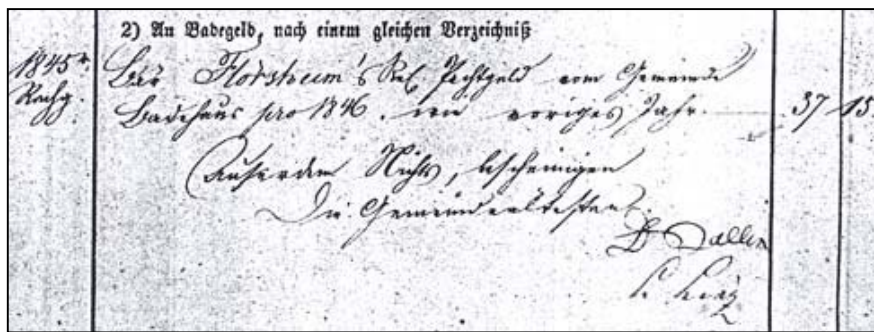 2) An Badegeld, nach einem gleichen Verzeichniß
1845r
Rechg.
Flörsheim's Rel. Pachtgeld vom Gemeinde
Badehaus pro 1846. wie voriges Jahr. 37 15
Außerdem Nichts, bescheinigen
Die Gemeindeältesten